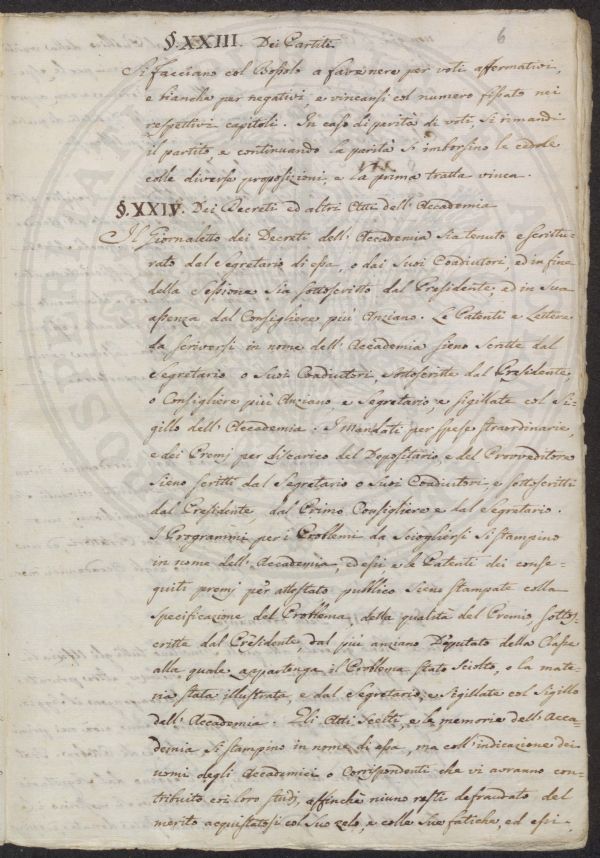 6
§. XXIII. Dei Partiti.
Si facciano col Bossolo a fave nere per voti affermativi,
e bianche per negativi e vincansi col numero fissato nei
respettivi capitoli. In caso di parità di voti, si rimandi
il partito, e continuando la parità si imborsino le cedole
colle diverse proposizioni, e la prima tratta vinca.
§. XXIV. Dei Decreti ed altri Atti dell'Accademia
Il Giornaletto dei Decreti dell'Accademia sia tenuto e scrittu-
rato dal Segretario di essa, o dai suoi Coadiutori, ed in fine
della Sessione sia sottoscritto dal Presidente, ed in sua
assenza dal Consigliere più Anziano. Le Patenti e Lettere
da scriversi in nome dell'Accademia sieno scritte dal
Segretario o suoi Coadiutori, sottoscritte dal Presidente,
o Consigliere più Anziano, e Segretario, e sigillate col Si-
gillo dell'Accademia. I Mandati per spese straordinarie,
e dei Premj per discarico del Depositario e del Provveditore
sieno scritti dal Segretario o suoi Coadiutori, e sottoscritti
dal Presidente, dal Primo Consigliere e dal Segretario.
I Programmi per i Problemi da sciogliersi si stampino
in nome dell'Accademia, ed essi, e le Patenti dei conse-
guiti premj per attestato pubblico sieno stampate colla
specificazione del Problema, della qualità del Premio sottos-
critte dal Presidente, dal più anziano Deputato della Classe
alla quale appartenga il Problema stato sciolto, o la mate-
ria stata illustrata, e dal Segretario, e sigillate col Sigillo
dell'Accademia. Gli Atti Scelti, e le memorie dell'Acca-
demia si stampino in nome di essa, ma coll'indicazione dei
nomi degli Accademici o Corrispondenti che vi avranno con-
tribuito coi loro studj, affinchè niuno resti defraudato del
merito acquistatosi col suo zelo, e colle sue fatiche, ed essi,